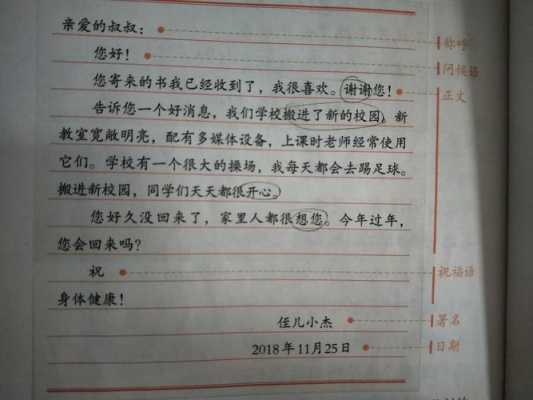 亲爱的叔叔：
称呼
您好！
问候语
您寄来的书我已经收到了，我很喜欢。谢谢您！
正文
告诉您一个好消息，我们学校搬进了新的校园，新
教室宽敞明亮，配有多媒体设备，上课时老师经常使用
它们。学校有一个很大的操场，我每天都会去踢足球。
搬进新校园，同学们天天都很开心。
您好久没回来了，家里人都很想您。今年过年，
您会回来吗？
祝
祝福语
身体健康！
侄儿小杰
署名
2018年11月25日
日期